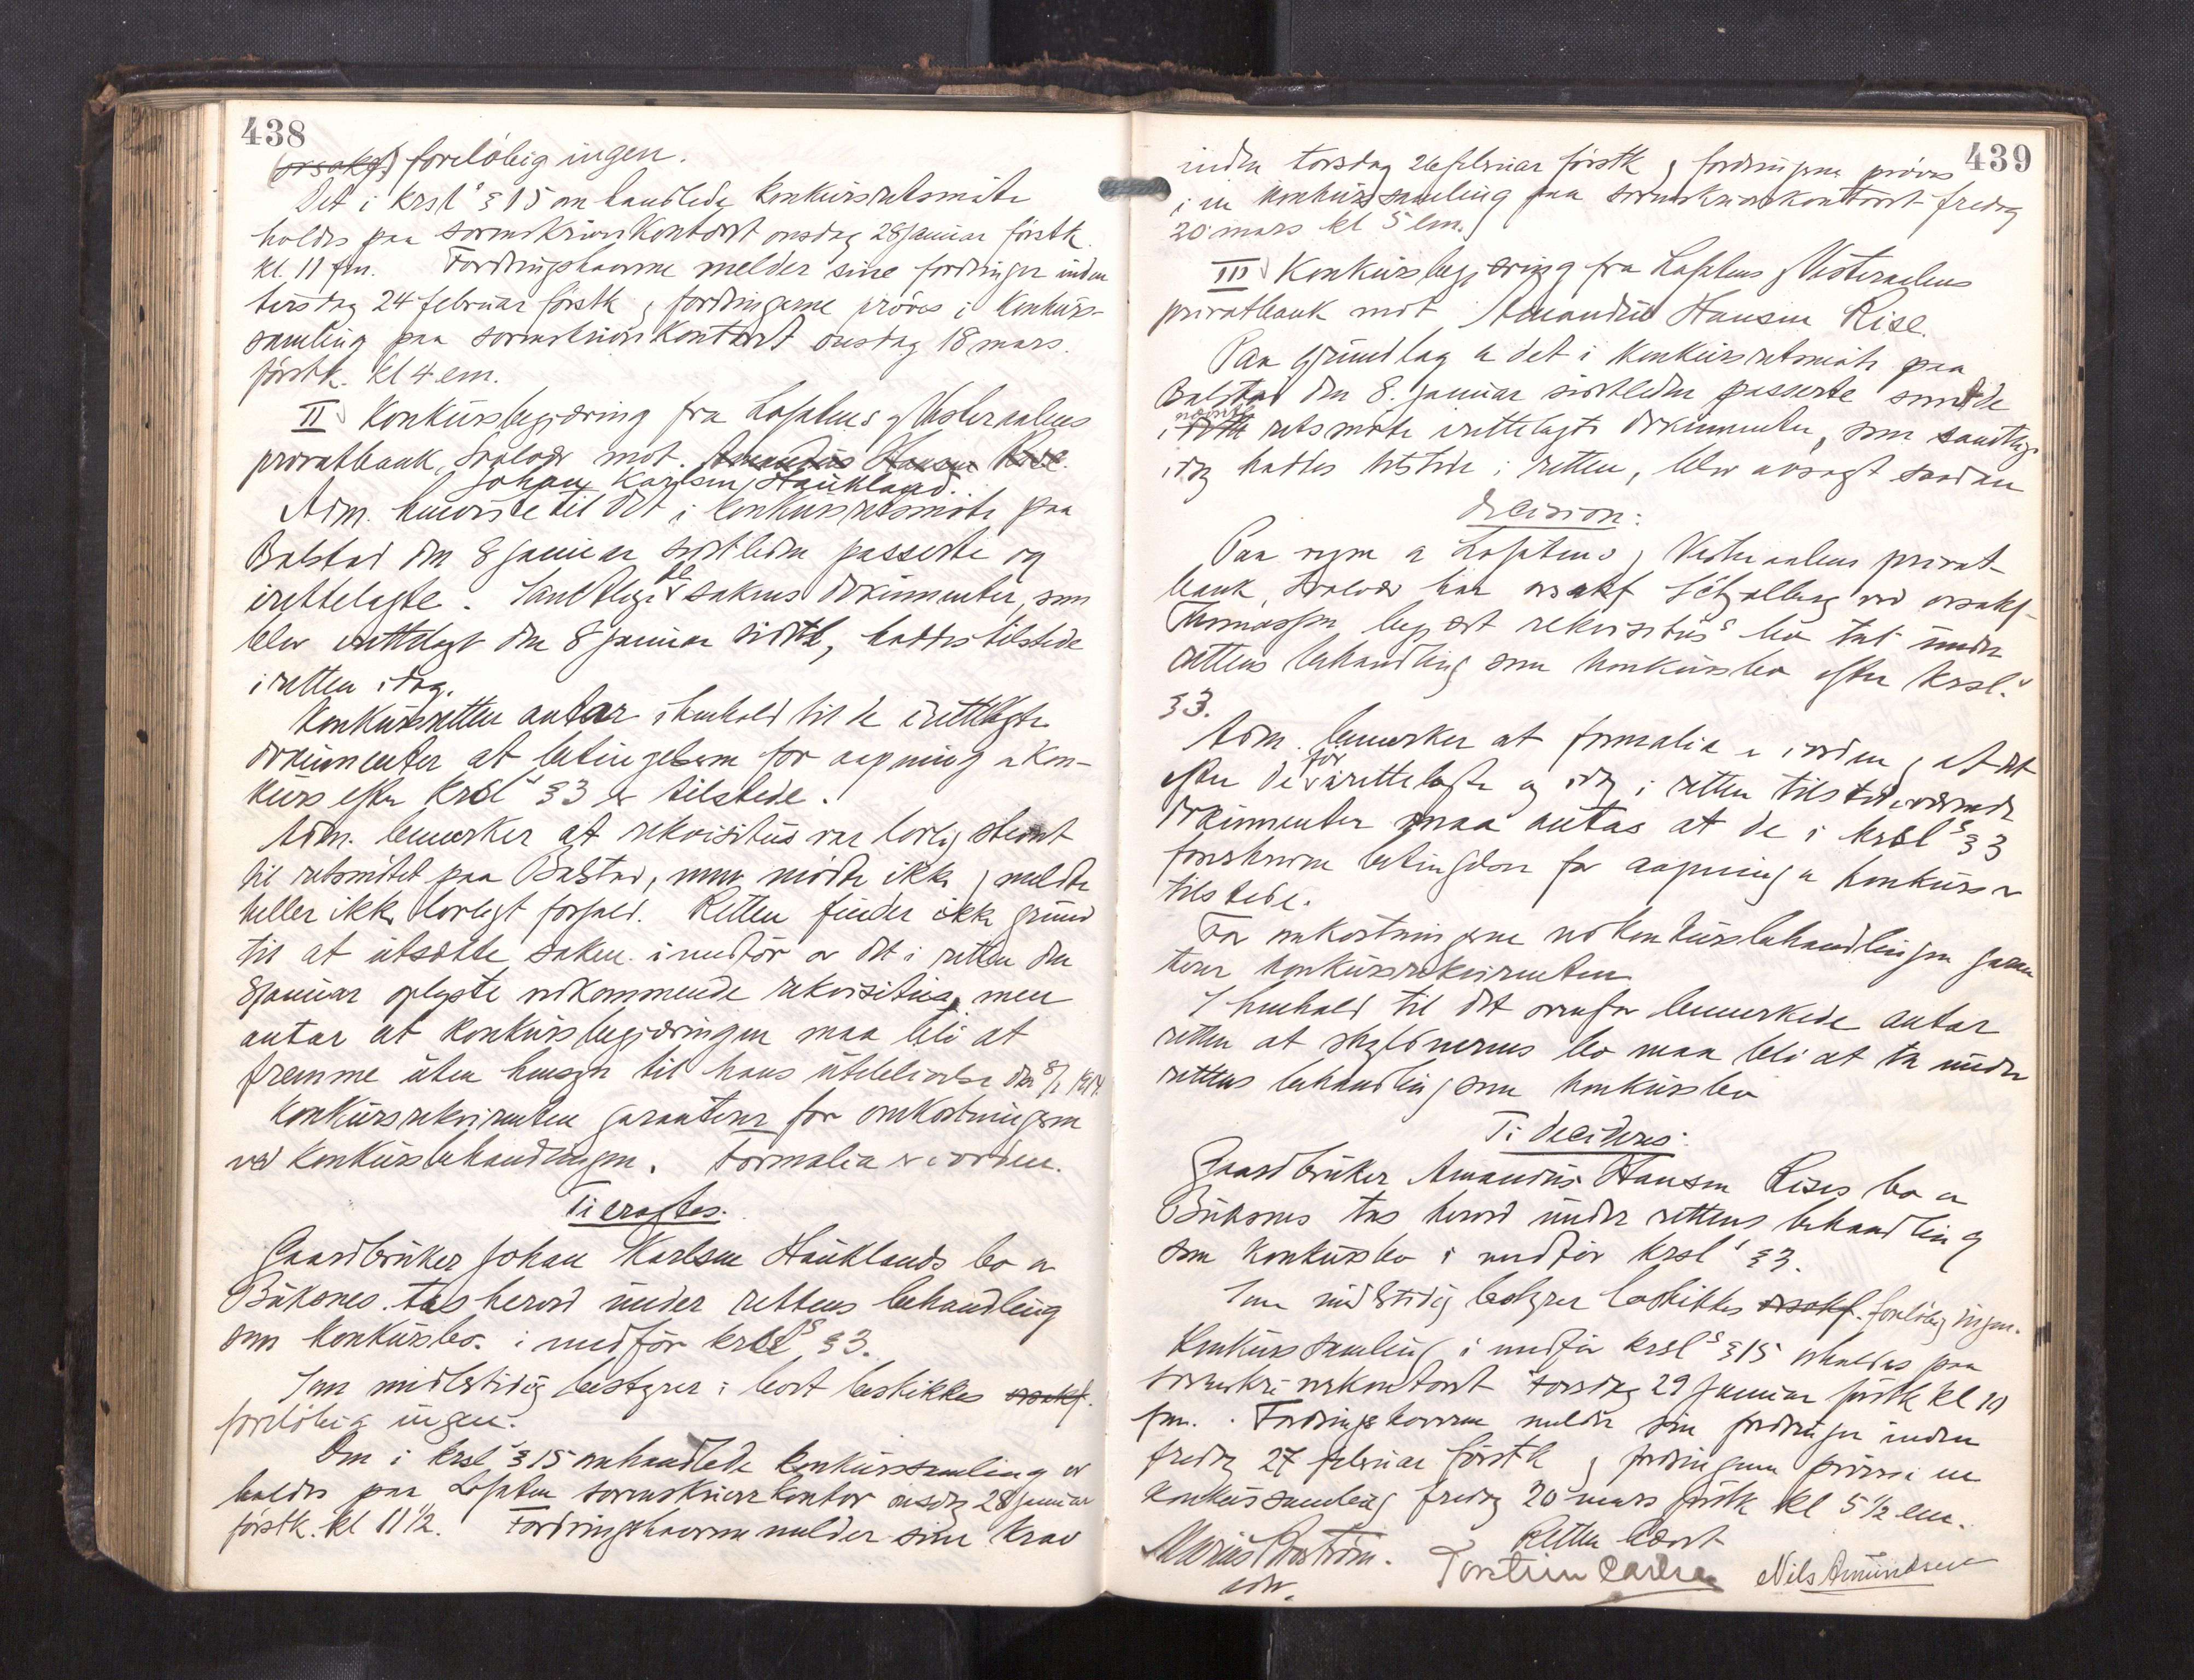 438
(orsakf.) foreløbig ingen.
Det i krsl's § 15 omhandlede konkursretsmøte
holdes paa sorenskriverkontoret onsdag 28 januar førstk.
kl. 11 fm. Fordringshaverne melder sine fordringer inden
tirsdag 24 februar førstk og fordringerne prøves i konkurs-
samling paa sorenskriverkontoret onsdag 18 mars
førstk. kl 4 em.
II Konkursbegjæring fra Lofotens og Vesteraalens
privatbank, Svolvær mot. Amandus Hansen Rise.
Johan Karlsen Haukland.
Adm. henviste til det i konkursretsmøte paa
Balstad den 8 januar sidstleden passerte og
irettelagte. Samtlige de sakens dokumenter, som
blev irettelagt den 8 januar sidstl, haddes tilstede
i retten idag.
Konkursretten antar i henhold til de irettelagte
dokumenter at betingelserne for aapning av kon-
kurs efter krsl's § 3 er tilstede.
Adm. bemerker at rekvisitus var lovlig stevnt
til retsmøtet paa Balstad, men møtte ikke og meldte
heller ikke lovlegt forfald. Retten finder ikke grund
til at utsætte saken i medfør av det i retten den
8 januar oplyste vedkommende rekvisitus, men
antar at konkursbegjæringen maa bli at
fremme uten hensyn til hans uteblivelse den 8/1 1914.
Konkursrekvirenten garanterer for omkostningerne
ved konkursbehandlingen. Formalia er i orden.
Ti eragtes:
Gaardbruker Johan Karlsen Hauklands bo av
Buksnes tas herved under rettens behandling
som konkursbo i medfør krsl's § 3.
Som midlertidig bestyrer i boet beskikkes orsakf.
foreløbig ingen.
Den i krsl's § 15 omhandlede konkurssamling er
holdes paa Lofoten sorenskriverkontor onsdag 28 januar
førstk. kl 11 1/2. Fordringshaverne melder sine krav
439
inden torsdag 26 februar førstk og fordringerne prøves
i en konkurssamling paa sorenskriverkontoret fredag
20 mars kl 5 em.
III Konkursbegjæring fra Lofotens og Vesteraalens
privatbank mot Amandus Hansen Rise.
Paa grundlag av det i konkursretsmøte paa
Balstad den 8. januar sidstleden passerte samt de
nævnte
i dette retsmøte irettelagte dokumenter, som samtlige
idag haddes tilstede i retten, blev avsagt saadan
decision:
Paa vegne av Lofotens og Vesteraalens privat-
bank, Svolvær har orsakf Schjølberg ved orsakf
Thomassen begjært rekvisitus's bo tat under
rettens behandling som konkursbo efter krsl.'s
§ 3.
Adm. bemerker at formalia er i orden og at det
efter de før irettelagte og idag i retten tilstedeværende
dokumenter maa antas at de i krsl's § 3
foreskrevne betingelser for aapning av konkurs er
tilstede.
For omkostningerne ved konkursbehandlingen garan
terer konkursrekvirenten
I henhold til det ovenfor bemerkede antar
retten at skyldnerens bo maa bli at ta under
rettens behandling som konkursbo
Ti decideres:
Gaardbruker Amandus Hansen Rises bo av
Buksnes tas herved under rettens behandling
som konkursbo i medfør krsl's § 3.
Som midlertidig bestyrer beskikkes orsakf. foreløbig ingen.
Konkurssamling i medfør krsl's § 15 avholdes paa
sorenskriverkontoret torsdag 29 januar førstk kl 10
fm. Fordringshaverne melder sine fordringer inden
fredag 27 februar førstk og fordringerne prøves i en
konkurssamling fredag 20 mars førstk kl 5 1/2 em.
Retten hævet
Marius
edv.
Torstein Carlsen Nils Amundsen